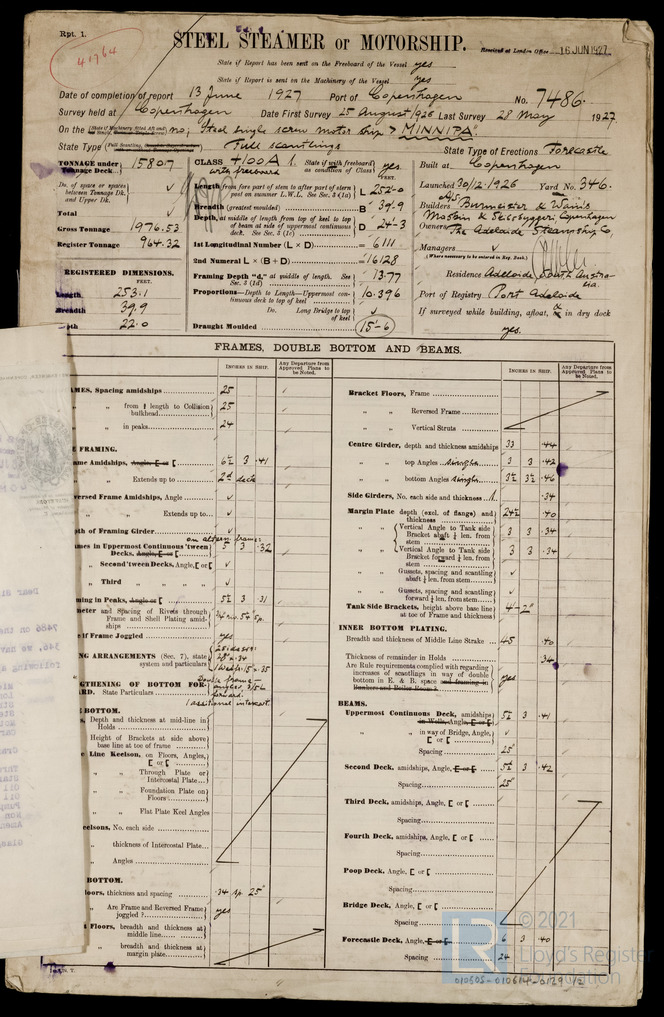 Rpt. 1.
41764
STEEL STEAMER or MOTORSHIP.
Received at London Office 16 JUN 1927
State if Report has been sent on the Freeboard of the Vessel yes
State if Report is sent on the Machinery of the Vessel yes
Date of completion of report 13 June 1927 Port of Copenhagen No. 7486.
Survey held at Copenhagen Date First Survey 25 August 1926 Last Survey 28 May 1927
On the Steel single screw motor ship "MINNIPA"
State Type Full scantlings State Type of Erections Forecastle
TONNAGE under Tonnage Deck 1580.7
Do. of space or spaces between Tonnage Dk. and Upper Dk.
Total
Gross Tonnage 1976.53
Register Tonnage 964.32
REGISTERED DIMENSIONS.
FEET.
Length 253.1
Breadth 39.9
22.0
CLASS +100A1. State if with freeboard as condition of Class yes
with freeboard
Length from fore part of stem to after part of stern post on summer L.W.L. See Sec. 3 (1a) L 252-0
Breadth (greatest moulded) B 39-9
Depth, at middle of length from top of keel to top of beam at side of uppermost continuous deck. See Sec. 3 (1c) D 24-3
1st Longitudinal Number (L × D) = 6111
2nd Numeral L × (B + D) = 16128
Framing Depth "d," at middle of length. See Sec. 3 (1d) 13.77
Proportions—Depth to Length—Uppermost continuous deck to top of keel 10.396
Do. Long Bridge to top of keel
Draught Moulded 15-6
Built at Copenhagen
Launched 30/12.1926 Yard No. 346.
Builders A/S Burmeister & Wain's
Maskin & Skibsbyggeri, Copenhagen
Owners The Adelaide Steamship Co.
Managers
(Where necessary to be entered in Reg. Book.)
Residence Adelaide South Australia.
Port of Registry Port Adelaide
If surveyed while building, afloat, or in dry dock
yes.
FRAMES, DOUBLE BOTTOM AND BEAMS.
INCHES IN SHIP. Any Departure from Approved Plans to be Noted.
AMES, Spacing amidships 25
" " from ⅕ length to Collision bulkhead 25
" " in peaks 24
E FRAMING.
me Amidships, Angle, E or [ 6½ 3 .41
" Extends up to 2d deck
versed Frame Amidships, Angle
" " Extends up to
pth of Framing Girder
mes in Uppermost Continuous 'tween Decks, Angle, E or [ 5 3 .32
" Second 'tween Decks, Angle, [ or [
" Third " "
ming in Peaks, Angle or [ 5½ 3 .31
meter and Spacing of Rivets through Frame and Shell Plating amidships
e if Frame Joggled yes
NG ARRANGEMENTS (Sec. 7), state system and particulars
GTHENING OF BOTTOM FORWARD. State Particulars
Double frame
1 additional intercost.
E BOTTOM.
s, Depth and thickness at mid-line in Holds
Height of Brackets at side above base line at toe of frame
e Line Keelson, on Floors, Angles, [ or [
" " Through Plate or Intercostal Plate
" " Foundation Plate on Floors
" " Flat Plate Keel Angles
eelsons, No. each side
" thickness of Intercostal Plate
" Angles
BOTTOM.
loors, thickness and spacing .34 sp. 25"
" Are Frame and Reversed Frame joggled? yes
t Floors, breadth and thickness at middle line
" breadth and thickness at margin plate
INCHES IN SHIP. Any Departure from Approved Plans to be Noted.
Bracket Floors, Frame
" " Reversed Frame
" " Vertical Struts
Centre Girder, depth and thickness amidships 33 .44
" " top Angles single 3 3 .42
" " bottom Angles single 3½ 3½ .46
Side Girders, No. each side and thickness 1. .34
Margin Plate depth (excl. of flange) and thickness 24½ .40
" " Vertical Angle to Tank side Bracket abaft ¼ len. from stem 3 3 .34
" " Vertical Angle to Tank side Bracket forward ¼ len. from stem 3 3 .34
" " Gussets, spacing and scantling abaft ¼ len. from stem
" " Gussets, spacing and scantling forward ¼ len. from stem
Tank Side Brackets, height above base line at toe of Frame and thickness 4-2"
INNER BOTTOM PLATING.
Breadth and thickness of Middle Line Strake 45 .40
Thickness of remainder in Holds .34
Are Rule requirements complied with regarding increases of scantlings in way of double bottom in E. & B. space and framing in Bunkers and Boiler Room? yes
BEAMS.
Uppermost Continuous Deck, amidships in Wells, Angle, E or [ 5½ 3 .41
" " in way of Bridge, Angle, [ or [
Spacing 25
Second Deck, amidships, Angle, E or [ 5½ 3 .42
Spacing 25
Third Deck, amidships, Angle, [ or [
Spacing
Fourth Deck, amidships, Angle, [ or [
Spacing
Poop Deck, Angle, [ or [
Spacing
Bridge Deck, Angle, [ or [
Spacing
Forecastle Deck, Angle, E or [ 6 3 .40
Spacing 24
© 2021
Lloyd's Register
Foundation
010605-010614-0129 1/2